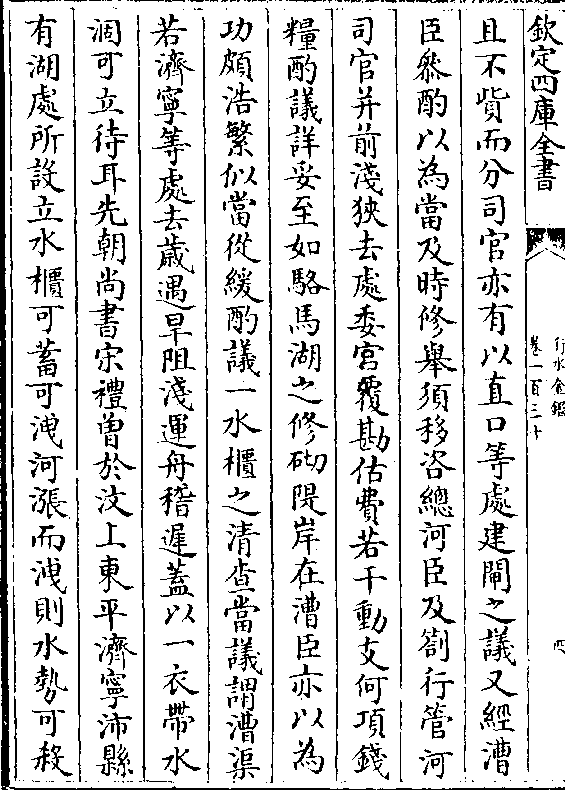 欽定四庫全書
行水金鑑
卷一百三十
四
且不貲而分司官亦有以直口等處建閘之議又經漕
臣叅酌以為當及時修舉須移咨總河臣及劄行管河
司官并前淺狹去處委官覆勘估費若干動支何項錢
糧酌議詳妥至如駱馬湖之修砌隄岸在漕臣亦以為
功頗浩繁似當從緩酌議一水櫃之清查當議謂漕渠
若濟寧等處去歲遇旱阻淺運舟稽遲蓋以一衣帶水
涸可立待耳先朝尚書宋禮曾於汶上東平濟寧沛縣
有湖處所設立水櫃可蓄可洩河漲而洩則水勢可殺